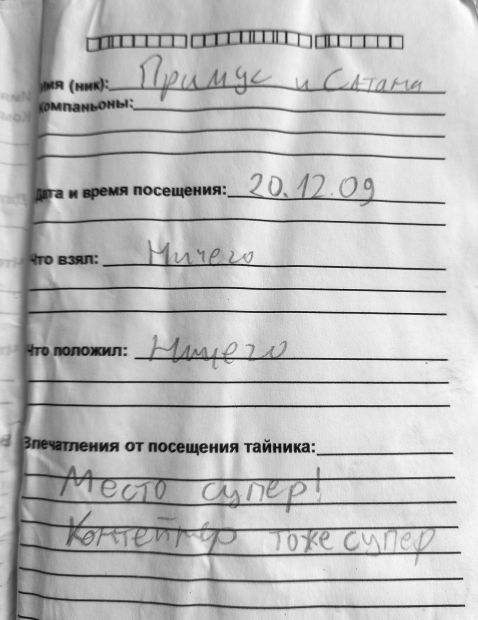 Имя (ник): Примус и Сатана
Компаньоны:
Дата и время посещения: 20.12.09
Что взял: Ничего
Что положил: Ничего
Впечатления от посещения тайника:
Место супер!
Контейнер тоже супер